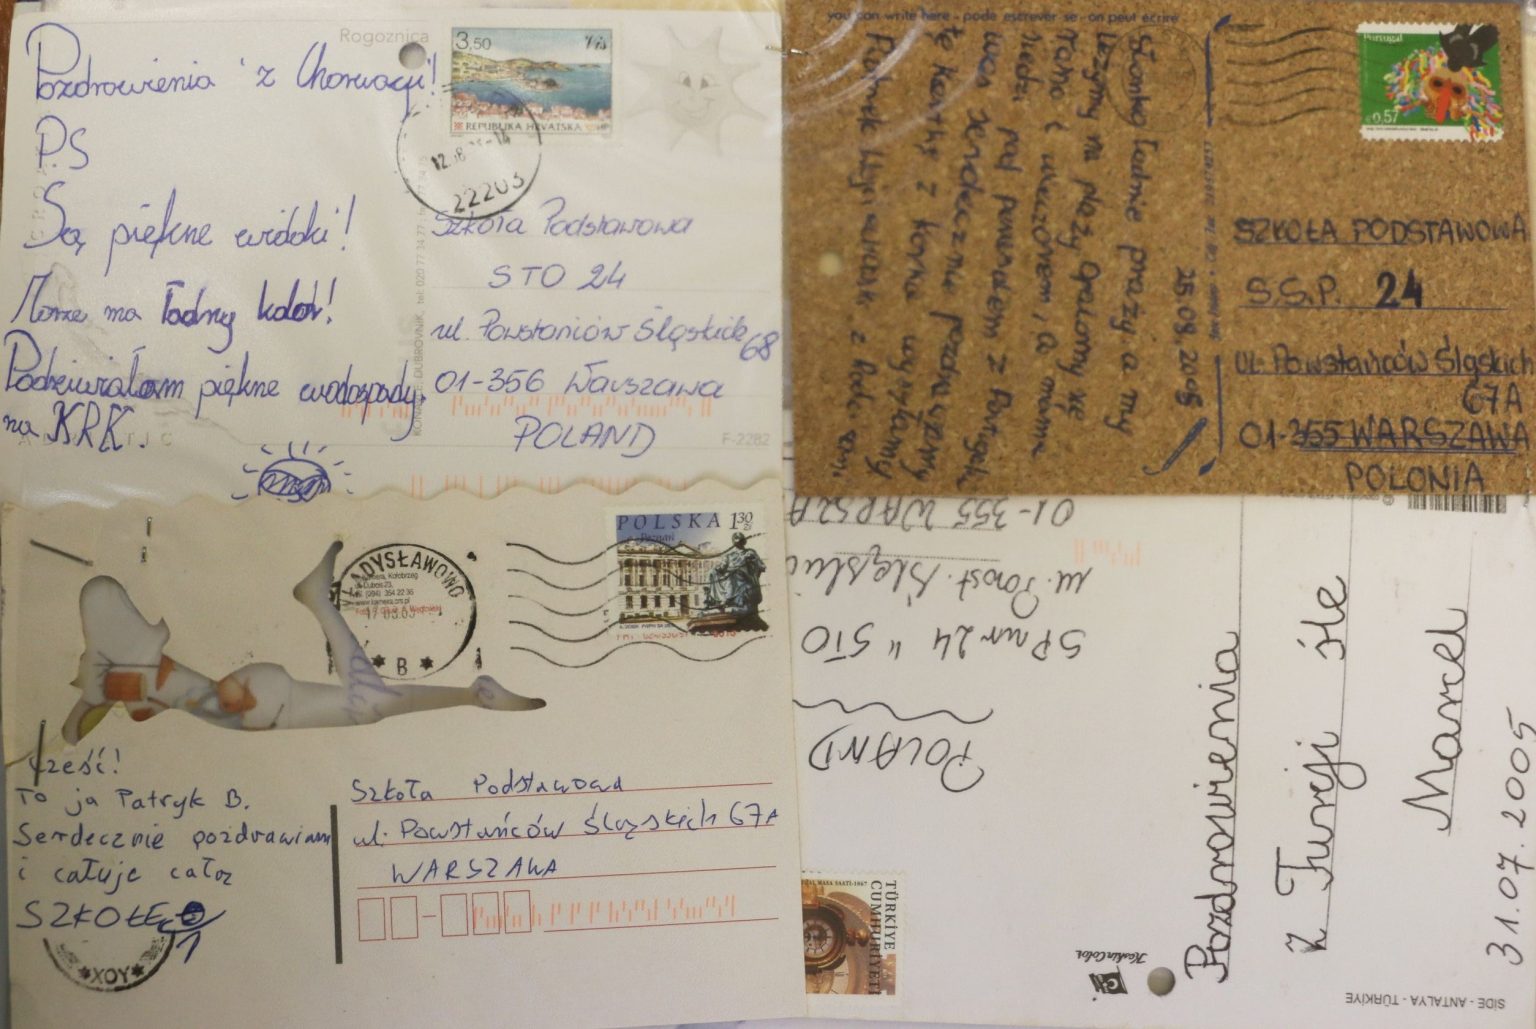 Rogoznica
Pozdrowienia z Chorwacji!
P.S
Są piękne widoki!
Morze ma ładny kolor!
Podziwiałam piękne wodospady,
na KRK.
3,50
Vis
REPUBLIKA HRVATSKA
22203
Szkoła Podstawowa
STO 24
ul. Powstaniów Śląskich 68
01-356 Warszawa
POLAND
F-2282
you can write here - pode escrever se - on peut écrire
Słonko ładnie praży a my
leżymy na plaży. Opalamy się
rano i wieczorem, a mama
siedzi pod parasolem z Portugalii
was serdecznie pozdrawiamy
tę kartkę z korka wysyłamy
25.08.2005
Portugal
€0,57
SZKOŁA PODSTAWOWA
S.S.P. 24
ul. Powstańców Śląskich
67A
01-355 WARSZAWA
POLONIA
WŁADYSŁAWOWO
B
POLSKA 130 zł
Poznań
Cześć!
To ja Patryk B.
Serdecznie pozdrawiam
i całuje całą
SZKOŁE
1
Szkoła Podstawowa
ul. Powstańców Śląskich 67A
WARSZAWA
01-355 WARSZA
ul. Powst. Śląskic
SP nr 24 "STO
POLAND
TÜRKİYE
CUMHURİYETİ
Keskin Color
Pozdrowienia
z Turcji śle
Marcel
31.07.2005
SIDE - ANTALYA - TÜRKİYE